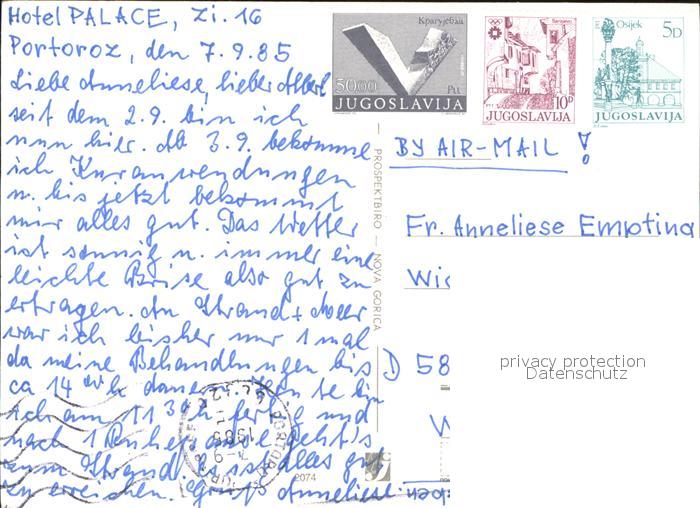 Hotel PALACE, Zi. 16
Portoroz, den 7.9.85
Liebe Anneliese, lieber Albert
seit dem 2.9. bin ich
nun hier. Ab 3.9. bekomme
ich Kuranwendungen
u. bis jetzt bekommt
mir alles gut. Das Wetter
ist sonnig u. immer eine
leichte Brise also gut zu
ertragen. Am Strand + Meer
war ich bisher nur 1 mal
da meine Behandlungen bis
ca 14 Uhr dauern. Heute bin
ich am 11 30 h fertig und
nach 1 Ruhepause geht's
zum Strand. Es ist alles gut
zu erreichen. Gruß Anneliese
Крагујевац
50,00
JUGOSLAVIJA
Sarajevo
10D
JUGOSLAVIJA
Osijek
5D
JUGOSLAVIJA
BY AIR-MAIL!
Fr. Anneliese Emptina
Wi
D 58
W
PROSPEKTBIRO — NOVA GORICA
2074
privacy protection
Datenschutz